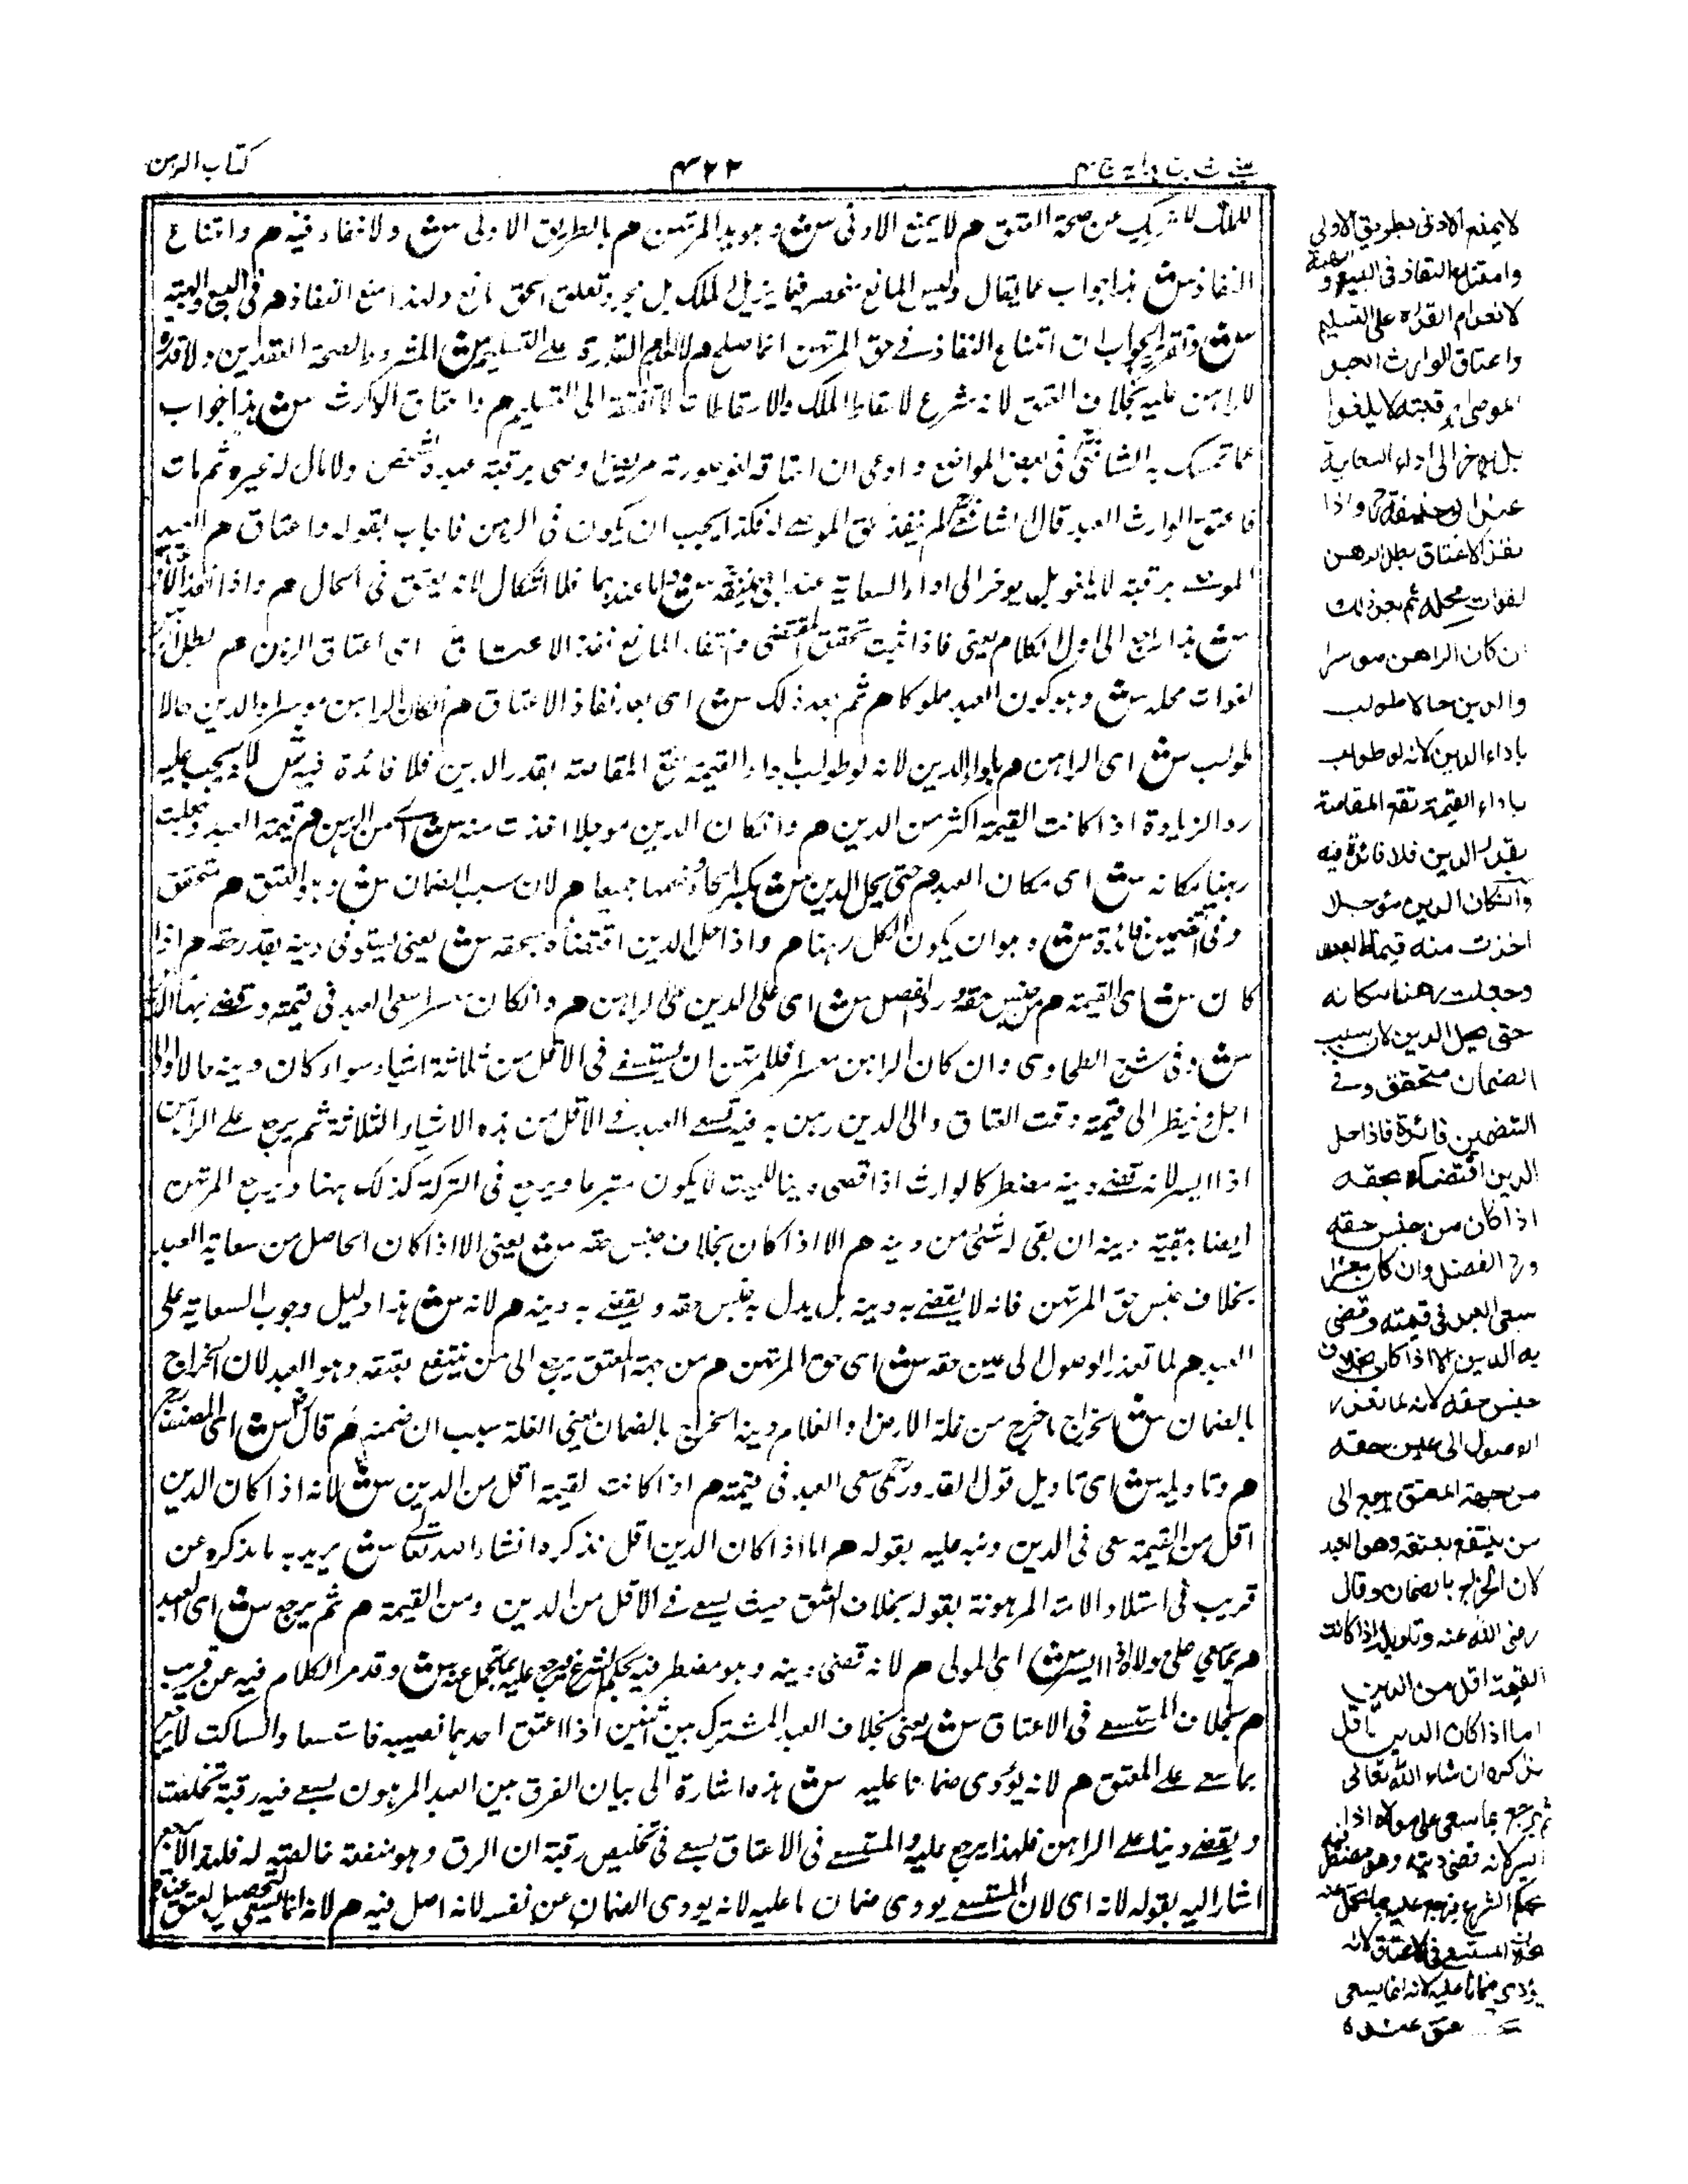 كتاب الرهن
۴۲۲
عيني شرح هداية ج ۴
للمالك لا شريك عن صحة العتق هم لا يمنع الادنى سش وهو يد المرتهن هم بالطريق الاولى سش ولا نفاذ فيه هم وامتناع
النفاذ سش هذا جواب عما يقال وليس المانع منحصر فيما يزيل الملك بل مجرد تعلق الحق مانع ولهذا منع النفاذ هم فى البيع والهبة
سش وتقرير الجواب ان امتناع النفاذ فى حق المرتهن انما صلح هم لانعدام القدرة على التسليم سش المشروط لصحة العقدين ولا قدرة
للراهن عليه بخلاف العتق لانه شرع لاسقاط الملك والاسقاطات لا تفتقر الى التسليم هم واعتاق الوارث سش هذا جواب
عما تمسك به الشافعي فى بعض المواضع وادعى ان اعتاقه لغو صورته مريض اوصى برقبة عبده لشخص ولا مال له غيره ثم مات
فاعتق الوارث العبد قال الشافعي لم ينفذ عتق الموصى له فكذا يجب ان يكون فى الرهن فاجاب بقوله واعتاق هم العبد
الموصى برقبته لا يلغو بل يوخر الى اداء السعاية عند ابى حنيفة سش واما عندهما فلا اشكال لانه يعتق فى الحال هم واذا نفذ الاعتاق
سش هذا راجع الى اول الكلام يعنى فاذا ثبت تحقق المقتضى وانتفاء المانع نفذ الاعتاق اى اعتاق الراهن هم بطل الرهن
لفوات محله سش وهو كون العبد مملوكا هم ثم بعد ذلك سش اى بعد نفاذ الاعتاق هم ان كان الراهن موسرا والدين حالا
طولب سش اى الراهن هم باداء الدين لانه لو طولب باداء القيمة تقع المقاصة بقدر الدين فلا فائدة فيه سش لانه يجب عليه
رد الزيادة اذا كانت القيمة اكثر من الدين هم وانكان الدين موجلا اخذت منه سش اى من الراهن هم قيمة العبد وجعلت
رهنا مكانه سش اى مكان العبد هم حتى يحل الدين سش بكسر الحاء وضمها جميعا هم لان سبب الضمان سش وهو العتق هم متحقق
وفى التضمين فائدة سش وهو ان يكون الكل رهنا هم واذا حل الدين اقتضاه بحقه سش يعنى يستوفى دينه بقدر حقه هم اذا
كان سش اى القيمة هم من جنس حقه ورد الفضل سش اى على الدين على الراهن هم وانكان معسرا سعى العبد فى قيمته وقضى بها الدين
سش وفى شرح الطحاوى وان كان الراهن معسرا فللمرتهن ان يستسعى فى الاقل من ثلاثة اشياء سواء كان دينه حالا او الى
اجل وينظر الى قيمته وقت العتاق والى الدين رهن به فيه تسعى العبد فى الاقل من هذه الاشياء الثلاثة ثم يرجع على الراهن
اذا ايسر لانه قضى دينه مضطر كالوارث اذا قضى دينا للميت لا يكون متبرعا ويرجع فى التركة كذلك ههنا ويرجع المرتهن
ايضا بقية دينه ان بقى له شئ من دينه هم الا اذا كان بخلاف جنس حقه سش يعنى الا اذا كان الحاصل من سعاية العبد
بخلاف جنس حق المرتهن فانه لا يقضى به دينه بل يبدل به جنس حقه ويقضى به دينه هم لانه سش هذا دليل وجوب السعاية على
العبد هم لما تعذر الوصول الى عين حقه سش اى حق المرتهن هم من جهة المعتق يرجع الى من ينتفع بعتقه وهو العبد لان الخراج
بالضمان سش الخراج ما خرج من غلة الارض او الغلام ومنه الخراج بالضمان يعنى الغلة بسبب ان ضمنه هم قال رض سش اى المصنف
هم وتاويله سش اى تاويل قول القدوري سعى العبد فى قيمته هم اذا كانت القيمة اقل من الدين سش لانه اذا كان الدين
اقل من القيمة سعى فى الدين ونبه عليه بقوله هم اما اذا كان الدين اقل نذكره انشاء الله تعالى سش يريد به ما يذكره عن
قريب فى استيلاد الامة المرهونة بقوله بخلاف العتق حيث يسعى فى الاقل من الدين ومن القيمة هم ثم يرجع سش اى العبد
هم بما سعى على مولاه اذا ايسر سش اى المولى هم لانه قضى دينه وهو مضطر فيه بحكم الشرع فيرجع عليه بما تحمل عنه سش وقد مر الكلام فيه عن قريب
هم بخلاف المستسعى فى الاعتاق سش يعنى بخلاف العبد المشترك بين اثنين اذا اعتق احدهما نصيبه فاستسعا والساكت لا يرجع
بما سعى على المعتق هم لانه يؤدى ضمانا عليه سش هذه اشارة الى بيان الفرق بين العبد المرهون يسعى فيه رقبة تخلصت
ويقضى دينا على الراهن فلهذا يرجع عليه والمستسعى فى الاعتاق يسعى فى تخليص رقبته ان الرق وهو منفعة خالصة له فلهذا لا يرجع
اشار اليه بقوله لانه اى لان المستسعى يودى ضمان ما عليه لانه يودى الضمان عن نفسه لانه اصل فيه هم لانه انما يسعى لتحصيل العتق عنده
لا يمنع الادنى بطريق الاولى
وامتناع النفاذ فى البيع والهبة
لانعدام القدرة على التسليم
واعتاق الوارث العبد
الموصى برقبته لا يلغوا
بل يوخر الى اداء السعاية
عند ابى حنيفة رح واذا
نفذ الاعتاق بطل الرهن
لفوات محله ثم بعد ذلك
ان كان الراهن موسرا
والدين حالا طولب
باداء الدين لانه لو طولب
باداء القيمة تقع المقاصة
بقدر الدين فلا فائدة فيه
وانكان الدين مؤجلا
اخذت منه قيمة العبد
وجعلت رهنا مكانه
حتى يحل الدين لان سبب
الضمان متحقق وفى
التضمين فائدة فاذا حل
الدين اقتضاه بحقه
اذا كان من جنس حقه
ورد الفضل وان كان معسرا
سعى العبد فى قيمته وقضى
به الدين الا اذا كان بخلاف
جنس حقه لانه لما تعذر
الوصول الى عين حقه
من جهة المعتق يرجع الى
من ينتفع بعتقه وهو العبد
لان الخراج بالضمان وقال
رضى الله عنه وتاويله اذا كانت
القيمة اقل من الدين
اما اذا كان الدين اقل
نذكره ان شاء الله تعالى
ثم يرجع بما سعى على مولاه اذا
ايسر لانه قضى دينه وهو مضطر فيه
بحكم الشرع فيرجع عليه بما تحمل عنه
بخلاف المستسعى فى الاعتاق لانه
يؤدى ضمانا عليه لانه انما يسعى
عتق عنده